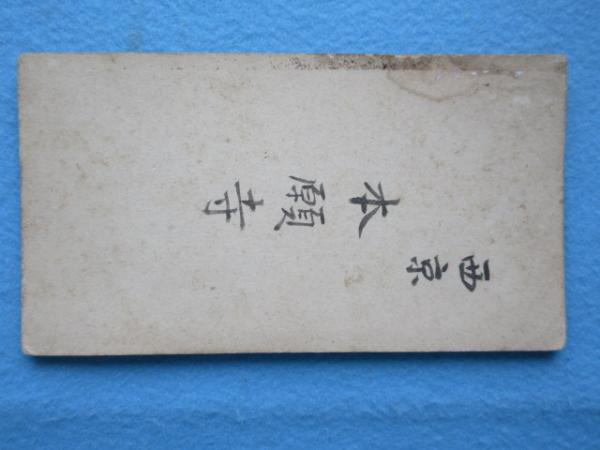 西京
本願寺